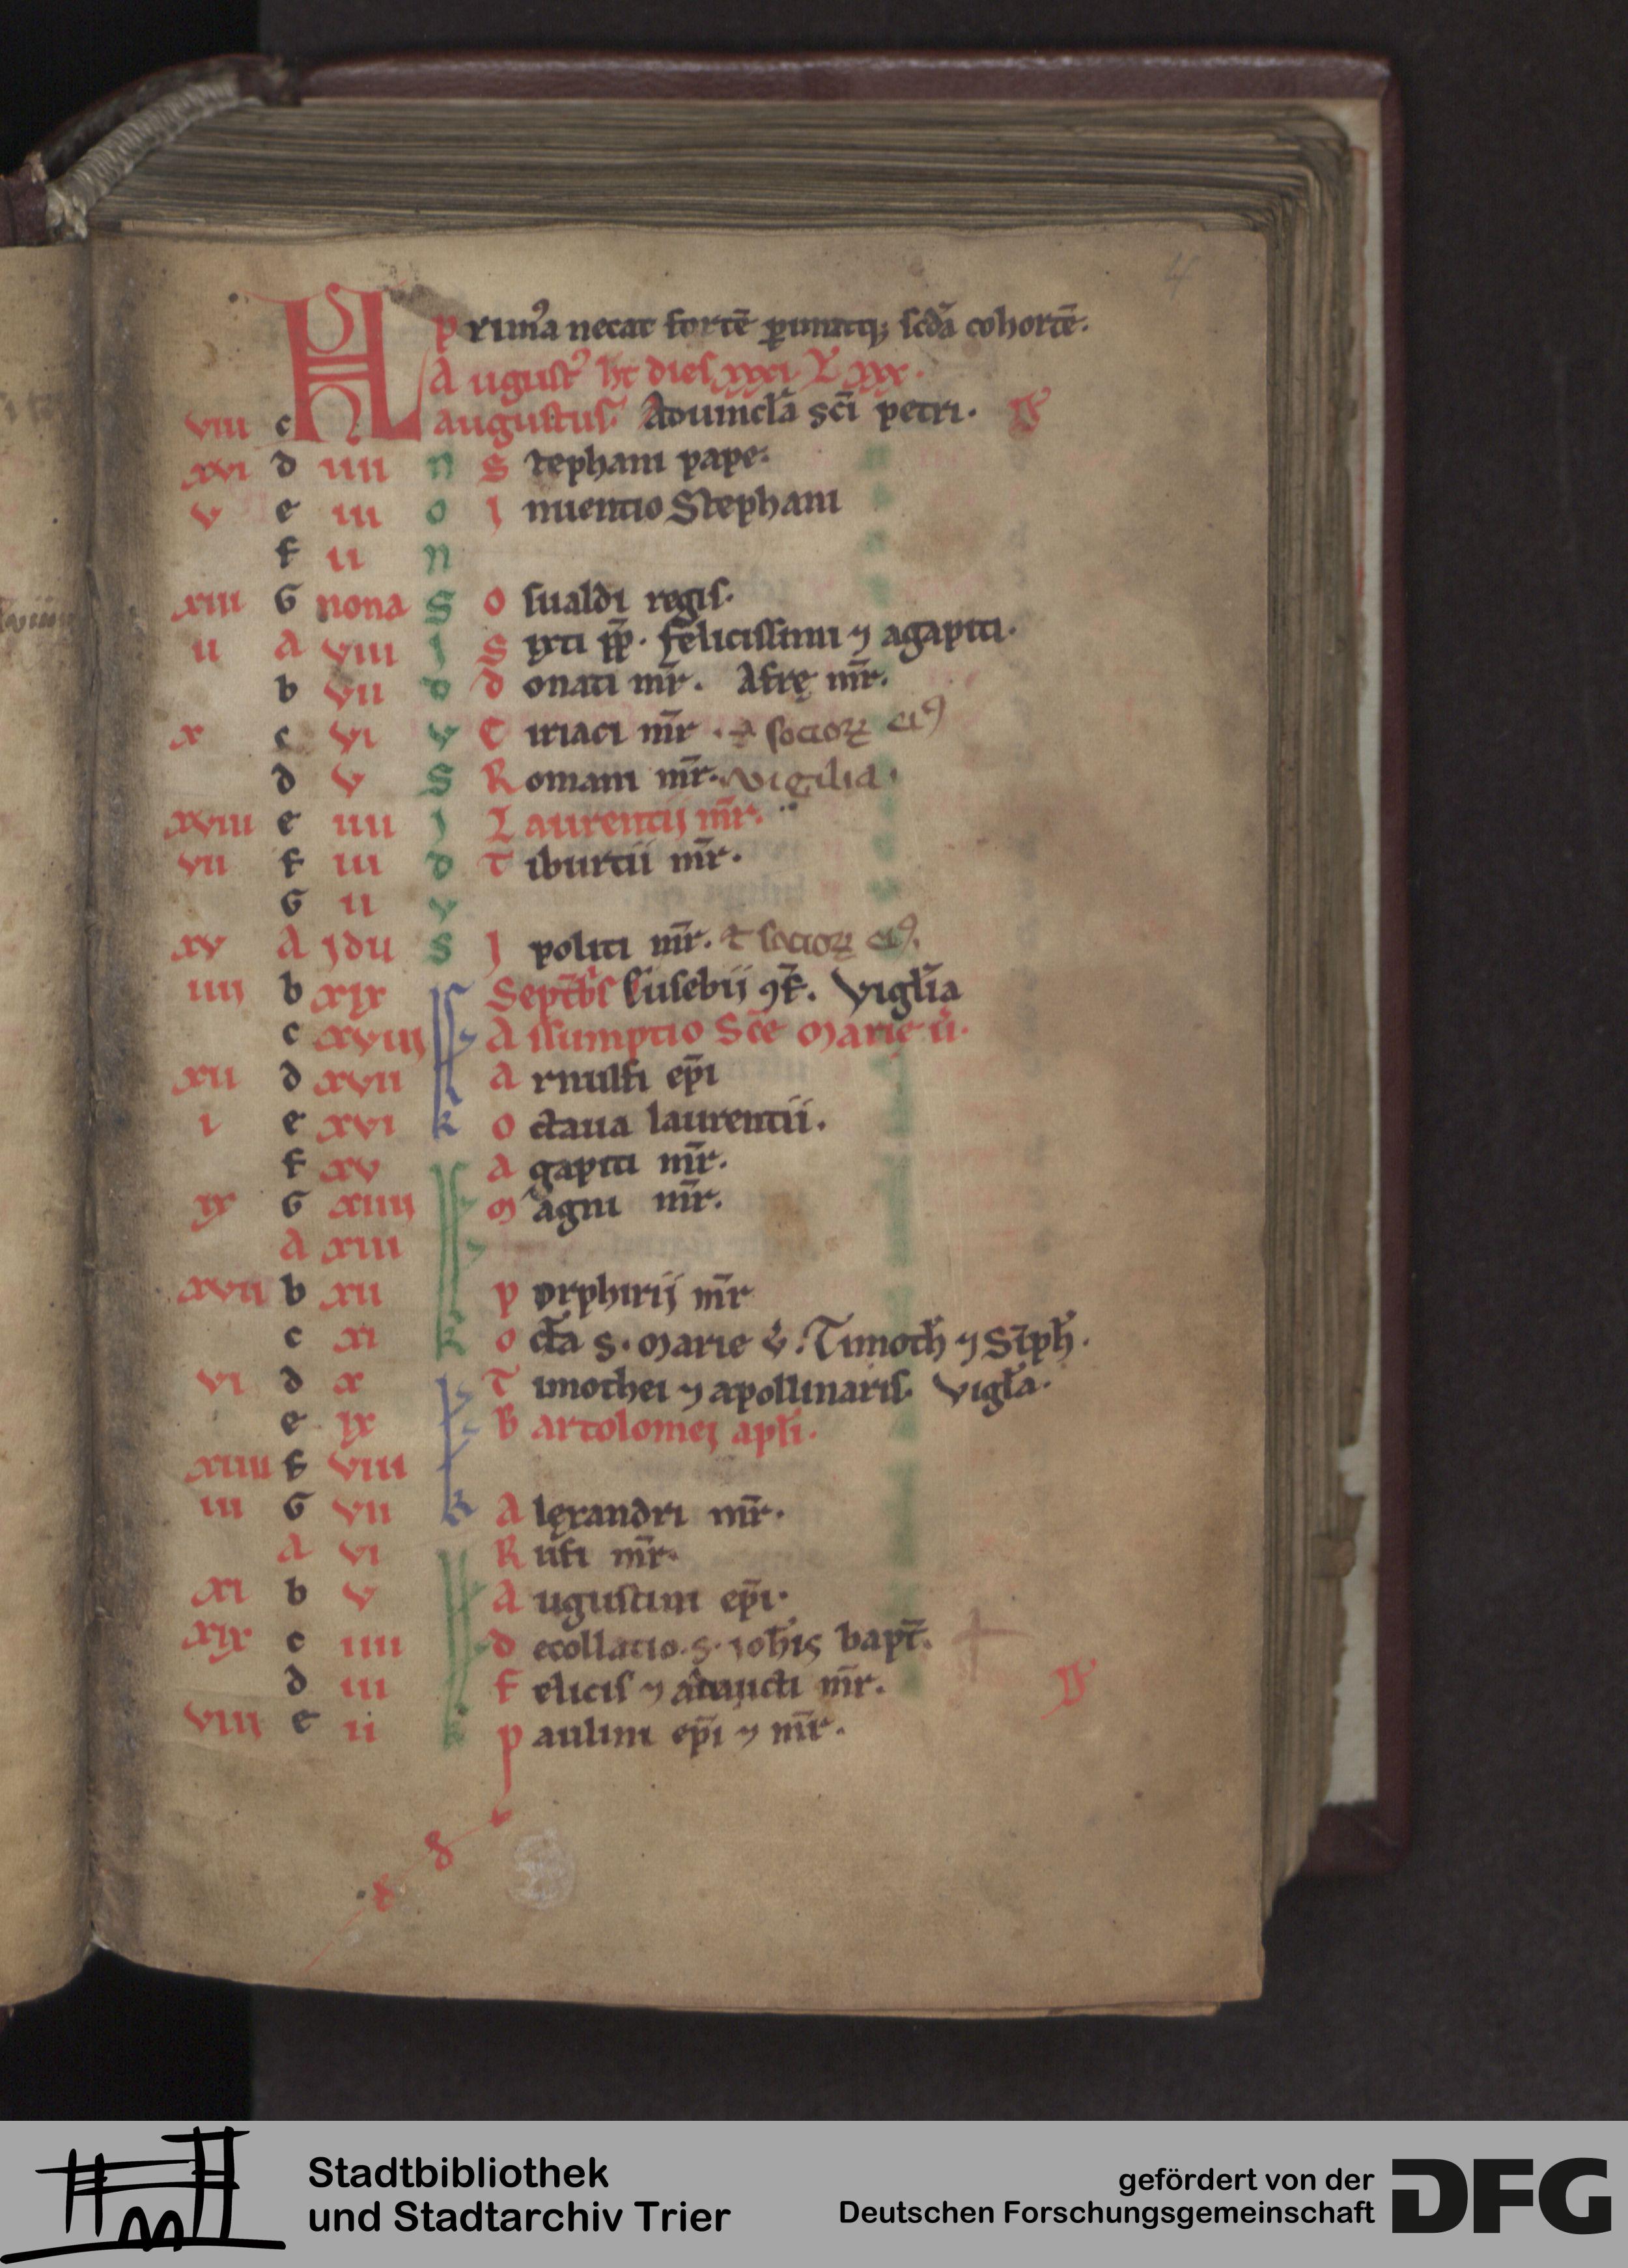 4
KL Prima necat fortē ꝑimitq; scďa cohortē.
August᷒ ht dies xxxi. L᷒ xxx.
viii c augustus. Aduincl̄a sc̄i petri.
xvi d iiii n Stephani pape.
v e iii o Inuentio Stephani
f ii n
xiii G nona S Osualdi regis.
ii A viii I Sixti pp̄. felicissimi ⁊ agapiti.
b vii d Donati mr̄. Afrę mr̄.
x c vi v Ciriaci mr̄. ⁊ socioꝝ ei᷒
d v S Romani mr̄. vigilia.
xviii e iiii I Laurentij mr̄.
vii f iii d Tiburtii mr̄.
G ii v
xv A Idu S Ipoliti mr̄. ⁊ socioꝝ ei᷒.
iiij b xix Septēbs Eusebij ꝯf̄. Vigl̄ia
c xviiij Assumptio Sc̄e Marie ṽ.
xii d xvii Arnulfi ep̄i
i e xvi k Octaua laurentii.
f xv Agapiti mr̄.
ix G xiiij Magni mr̄.
A xiii
xvii b xii Porphirij mr̄
c xi k Oct̄a S. Marie v̓. Timoth̄ ⁊ Simph̄.
vi d x Timothei ⁊ apollinaris. Vigl̄a.
e ix Bartolomej apl̄i.
xiiii f viii
iii G vii k Alęxandri mr̄.
A vi Rufi mr̄.
xi b v Augustini ep̄i.
xix c iiii Decollatio. S. ioh̄is bapt̄.
d iii Felicis ⁊ adaucti mr̄.
viij e ii k Paulini ep̄i ⁊ mr̄.
Stadtbibliothek
und Stadtarchiv Trier
gefördert von der
Deutschen Forschungsgemeinschaft
DFG